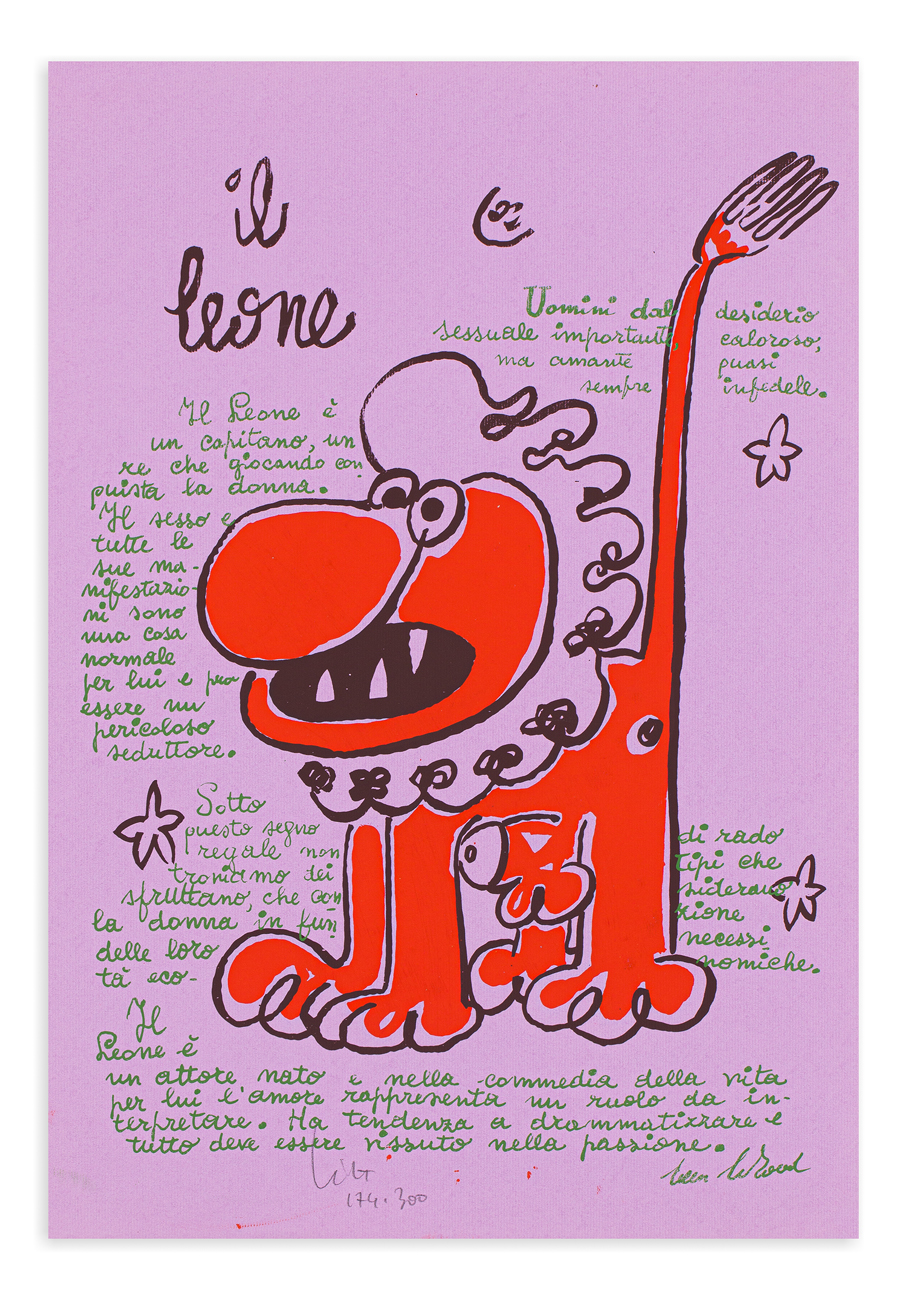 il
leone
Uomini dal desiderio
sessuale importante, caloroso,
ma amante quasi
sempre infedele.
Il Leone è
un capitano, un
re che giocando con
quista la donna.
Il sesso e
tutte le
sue ma-
nifestazio-
ni sono
una cosa
normale
per lui e può
essere un
pericoloso
seduttore.
Sotto
questo segno
regale non di rado
troviamo dei tipi che
sfruttano, che con siderano
la donna in fun zione
delle loro necessi
tà eco- nomiche.
Il
Leone è
un attore nato e nella commedia della vita
per lui l'amore rappresenta un ruolo da in-
terpretare. Ha tendenza a drammatizzare e
tutto deve essere vissuto nella passione.
174.300